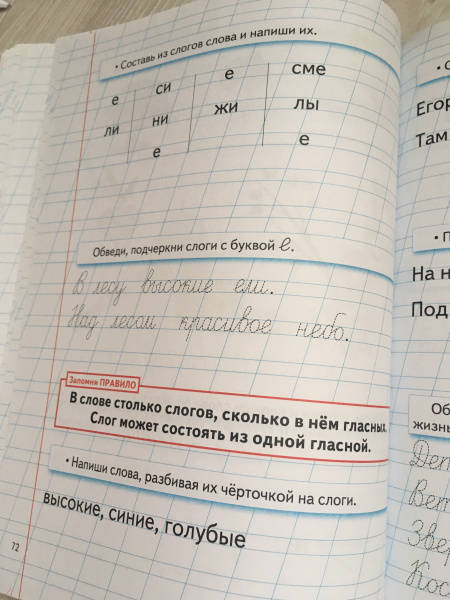 • Составь из слогов слова и напиши их.
е си е сме
ли ни жи лы
е е
Обведи, подчеркни слоги с буквой е.
В лесу высокие ели.
Над лесом красивое небо.
Запомни ПРАВИЛО
В слове столько слогов, сколько в нём гласных.
Слог может состоять из одной гласной.
• Напиши слова, разбивая их чёрточкой на слоги.
высокие, синие, голубые
72
• С
Егор
Там
• П
На н
Под
Об
жизнь
Вет
Звер
Кос